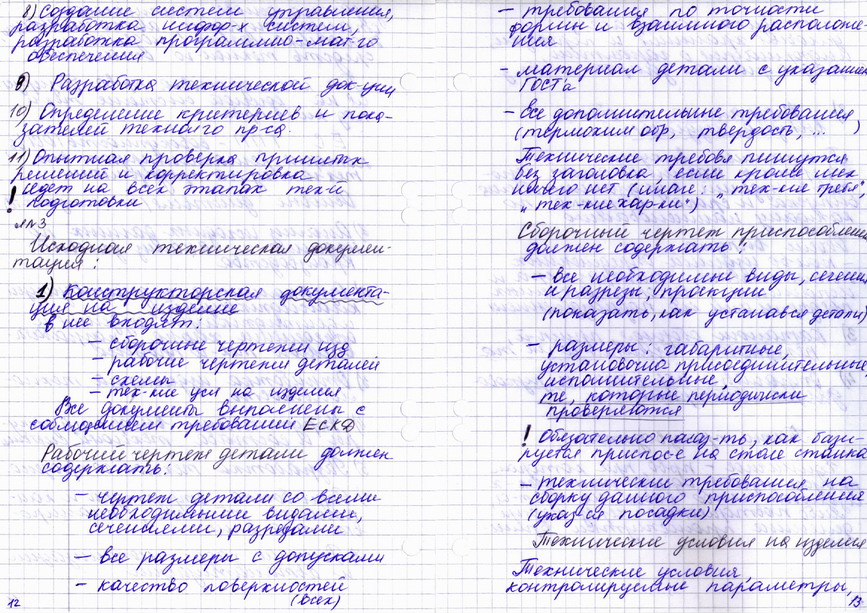 8) Создание систем управления,
разработка информ-х систем,
разработка программно-мат-го
обеспечения
9) Разработка технической док-ции
10) Определение критериев и пока-
зателей технол-го пр-са
11) Опытная проверка принятых
решений и корректировка
! ведет на всех этапах тех-й
подготовки
л№3
Исходная техническая докумен-
тация:
1) Конструкторская документа-
ция на изделие
в нее входят:
– сборочные чертежи изд
– рабочие чертежи деталей
– схемы
– тех-кие усл на изделия
Все документы выполнены с
соблюдением требований ЕСКД
Рабочий чертеж детали должен
содержать:
– чертеж детали со всеми
необходимыми видами,
сечениями, разрезами
– все размеры с допусками
– качество поверхностей
(всех)
12
– требования по точности
формы и взаимного расположе-
ния
– материал детали с указанием
ГОСТа
– Все дополнительные требования
(термохим обр, твердость, ... )
Технические требов-я пишутся
без заголовка, если кроме них
ничего нет (иначе: „тех-кие треб-я",
„тех-кие хар-ки")
Сборочный чертеж приспособления
должен содержать:
– все необходимые виды, сечения
и разрезы, проекции
(показать, как устан-ся деталь)
– размеры: габаритные,
установочно присоединительные,
исполнительные,
те, которые периодически
проверяются
! Обязательно показ-ть, как бази-
руется приспос-е на столе станка
– технические требования на
сборку данного приспособления
(указ-ся посадки)
Технические условия на изделия
Технические условия,
контролируемые параметры,
13